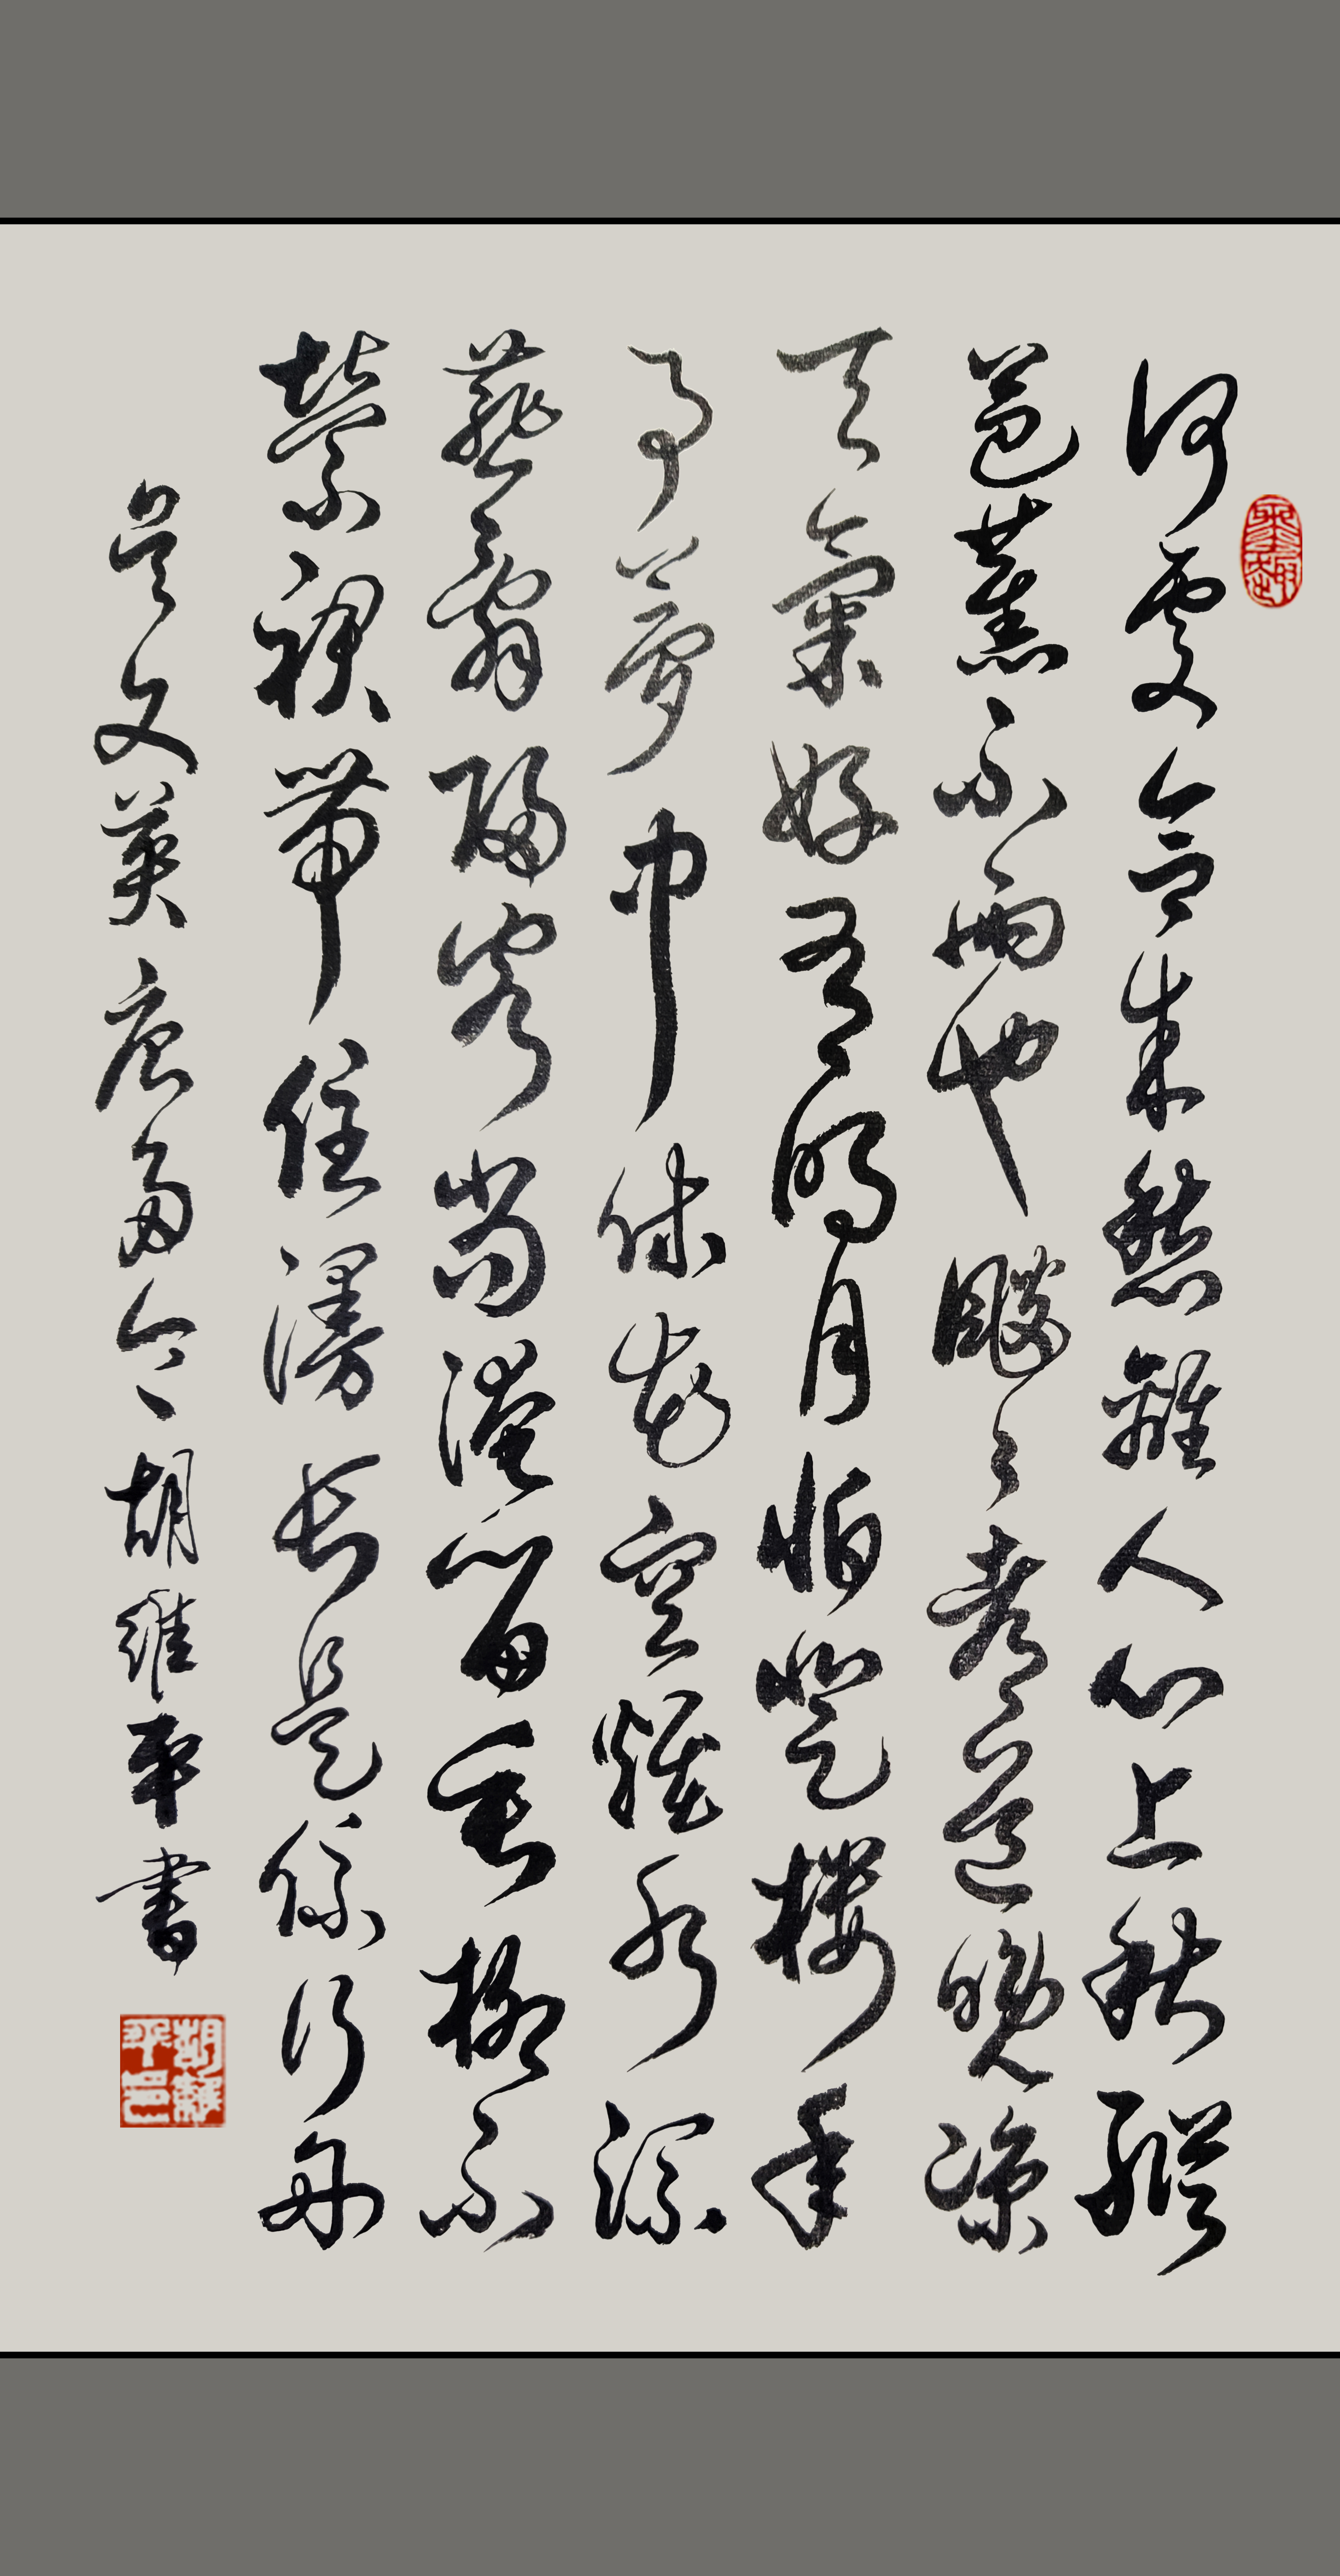 何處合成愁離人心上秋縱
芭蕉不雨也颼々都道晚涼
天氣好有明月怕登樓年
事夢中休花空煙水流
燕辭歸客尚淹留垂柳不
縈裙帶住漫長是係行舟
吳文英唐多令胡維平書
胡維平印